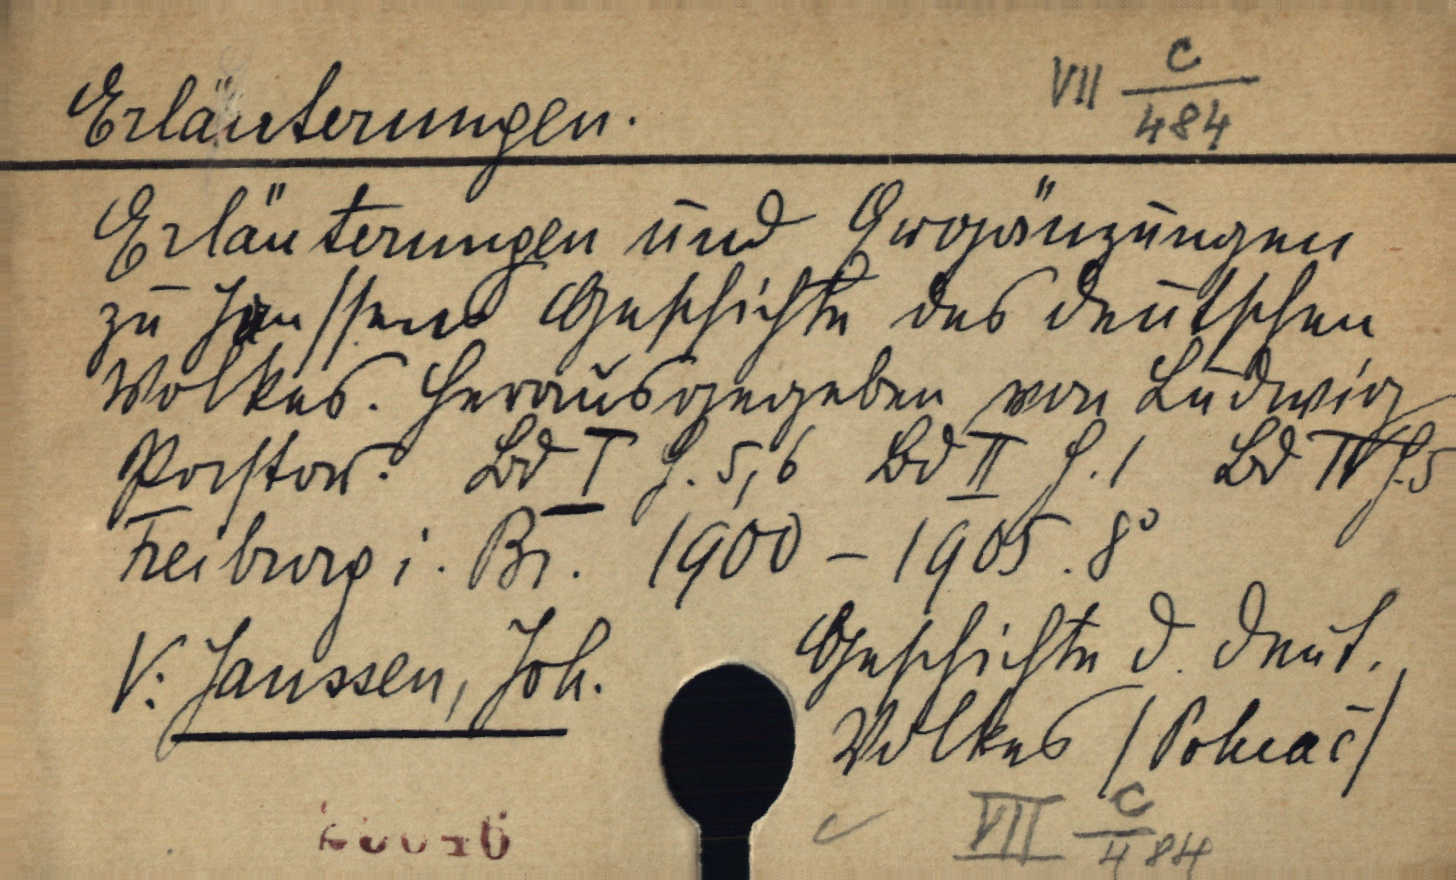 Erläuterungen. VII c/484
Erläuterungen und Ergänzungen
zu Janssens Geschichte des deutschen
Volkes. Herausgegeben von Ludwig
Pastor. Bd I H. 5,6 Bd II H. 1 Bd IV H. 5
Freiburg i. Br. 1900 – 1905. 8°
V: Janssen, Joh.
Geschichte d. deut.
Volkes
VII c/484